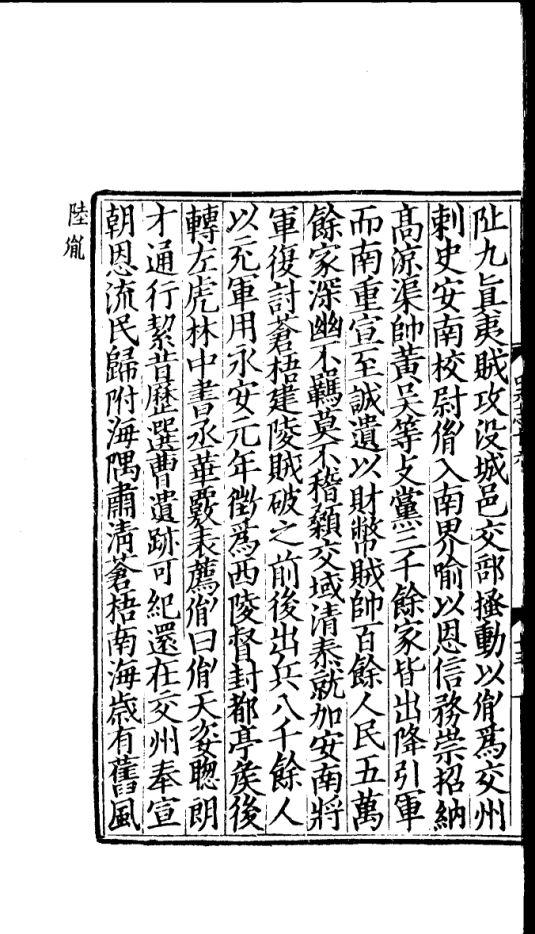 阯九真夷賊攻没城邑交部搔動以胤爲交州
刺史安南校尉胤入南界喻以恩信務崇招納
髙涼渠帥黄吴等支黨三千餘家皆出降引軍
而南重宣至誠遺以財幣賊帥百餘人民五萬
餘家深幽不羈莫不稽顙交域清泰就加安南將
軍復討蒼梧建陵賊破之前後出兵八千餘人
以充軍用永安元年徵爲西陵督封都亭侯後
轉左虎林中書丞華覈表薦胤曰胤天姿聦朗
才通行絜昔歴選曹遺跡可紀還在交州奉宣
朝恩流民歸附海隅肅清蒼梧南海歳有舊風
陸胤